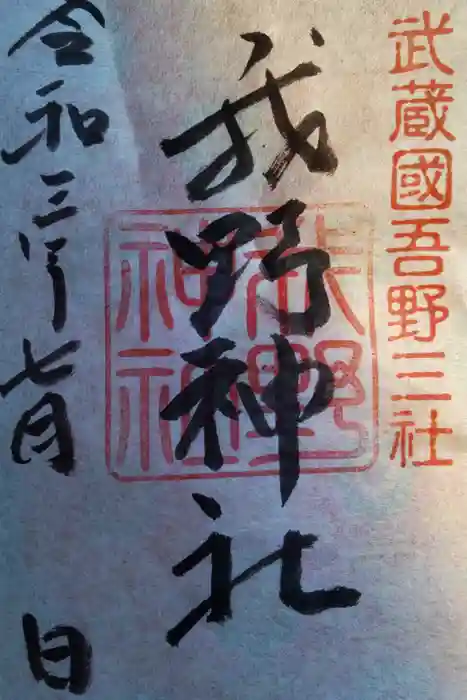 武蔵國吾野三社
我野神社
我野
神社
令和三年七月 日